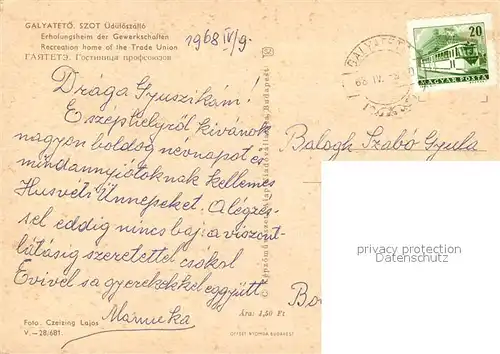 GALYATETŐ. SZOT Üdülőszálló
Erholungsheim der Gewerkschaften
Recreation home of the Trade Union
ГАЛЯТЕТЭ. Гостиница профсоюзов
1968 IV/9.
Drága Gyuszikám!
E széphelyről kívánok
nagyon boldog névnapot és
mindannyiótoknak kellemes
Husvéti Ünnepeket. A légzés-
sel eddig nincs baj a viszont-
látásig szeretettel csókol
Évivel s a gyerekekkel együtt
Mamuka
Foto: Czeizing Lajos
V.—28/681.
Képzőművészeti Alap Kiadóvállalata, Budapest
Ára: 1,50 Ft
OFFSET NYOMDA BUDAPEST
GALYATETŐ
68 IV.
20
MAGYAR POSTA
Balogh Szabó Gyula
privacy protection
Datenschutz